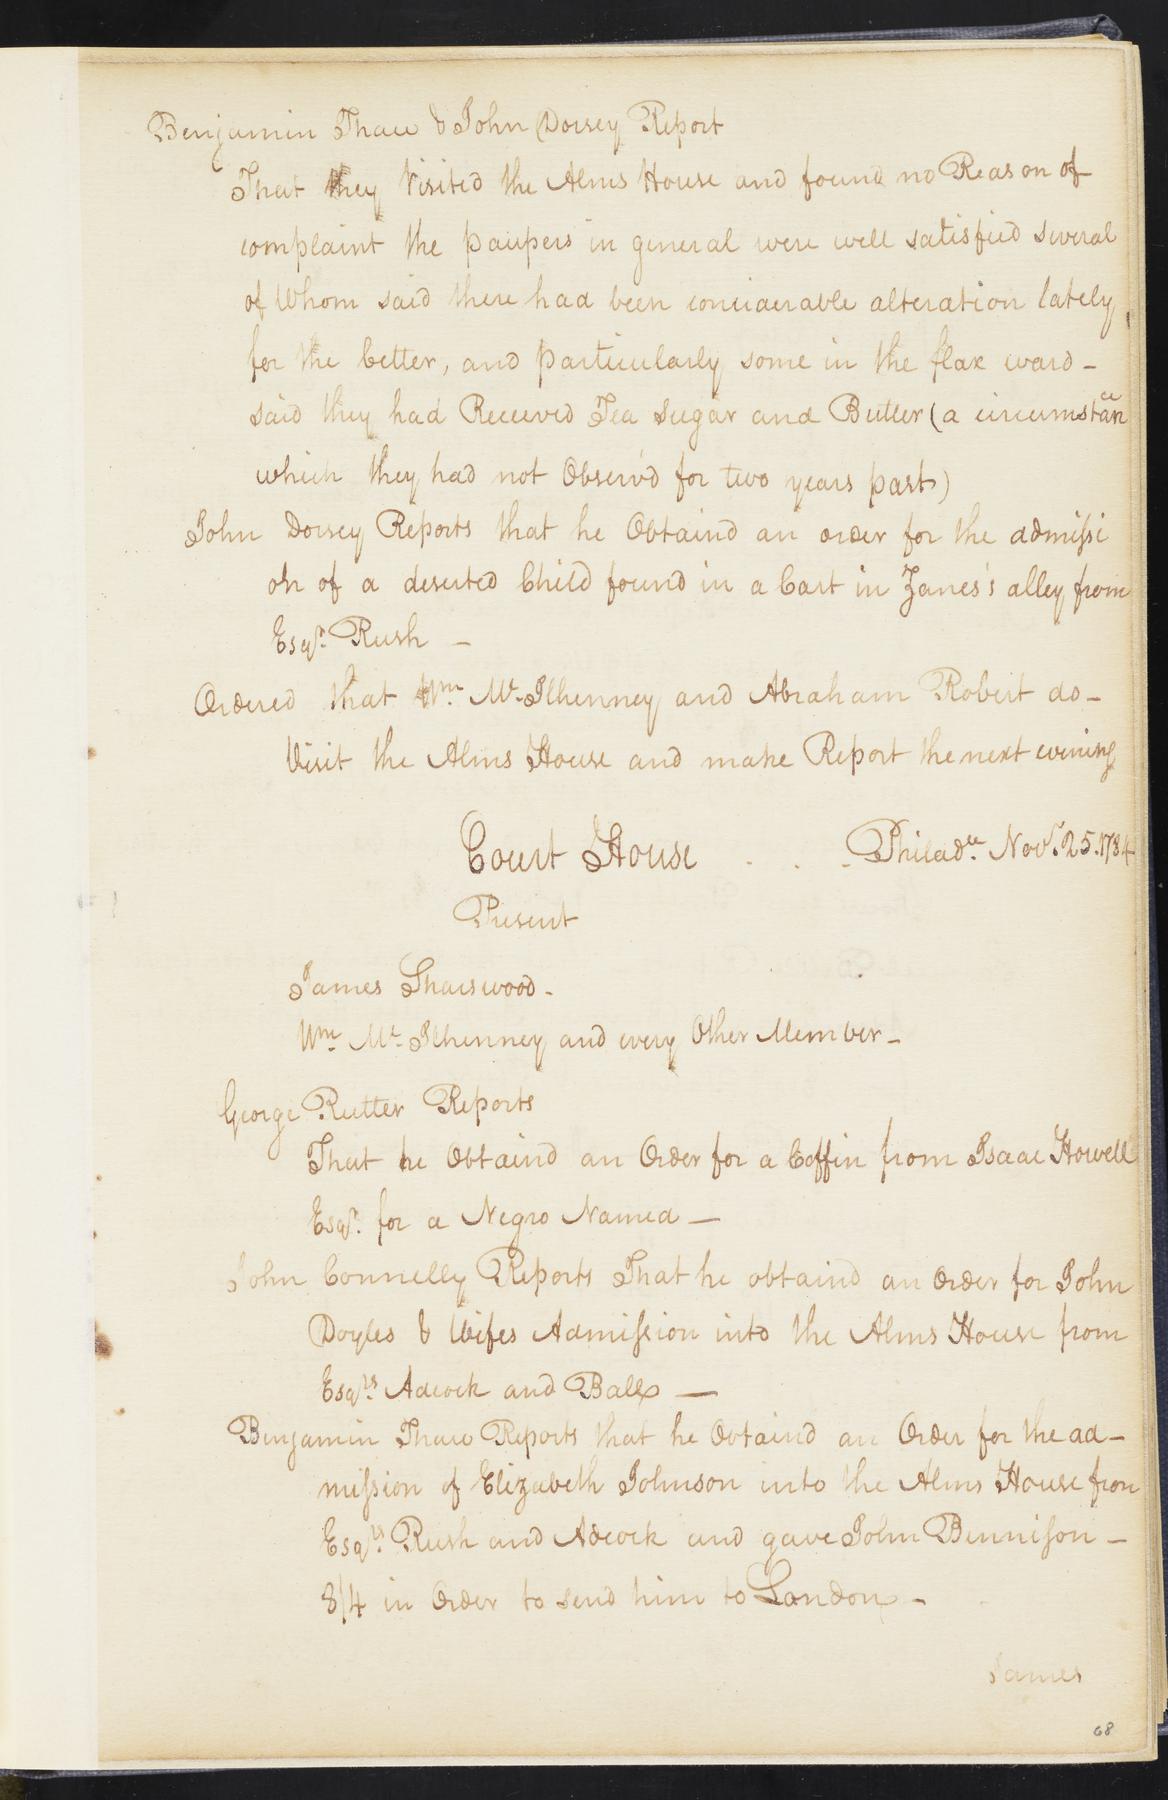 Benjamin Thaw & John Dorsey Report
That they Visited the Alms House and found no Reason of
complaint the paupers in general were well satisfied several
of Whom said there had been considerable alteration lately
for the better, and particularly some in the flax ward –
said they had Received Tea Sugar and Butter (a circumstance
which they had not Observ'd for two years past)
John Dorsey Reports that he Obtaind an order for the admissi
on of a deserted Child found in a Cart in Zanes's alley from
Esqr. Rush –
Ordered that Wm. Mc. Ilhenney and Abraham Robert do –
Visit the Alms House and make Report the next evening
Court House . . . Philada. Novr. 25. 1784
Present
James Sharswood –
Wm. Mc. Ilhenney and every Other Member –
George Rutter Reports
That he Obtaind an Order for a Coffin from Isaac Howell
Esqr. for a Negro Named —
John Connelly Reports That he obtaind an Order for John
Doyles & Wifes Admission into the Alms House from
Esqrs. Adcock and Ball —
Benjamin Thaw Reports that he Obtaind an Order for the ad–
mission of Elizabeth Johnson into the Alms House from
Esqrs. Rush and Adcock and gave John Bennison –
8/4 in Order to send him to London –
James
68